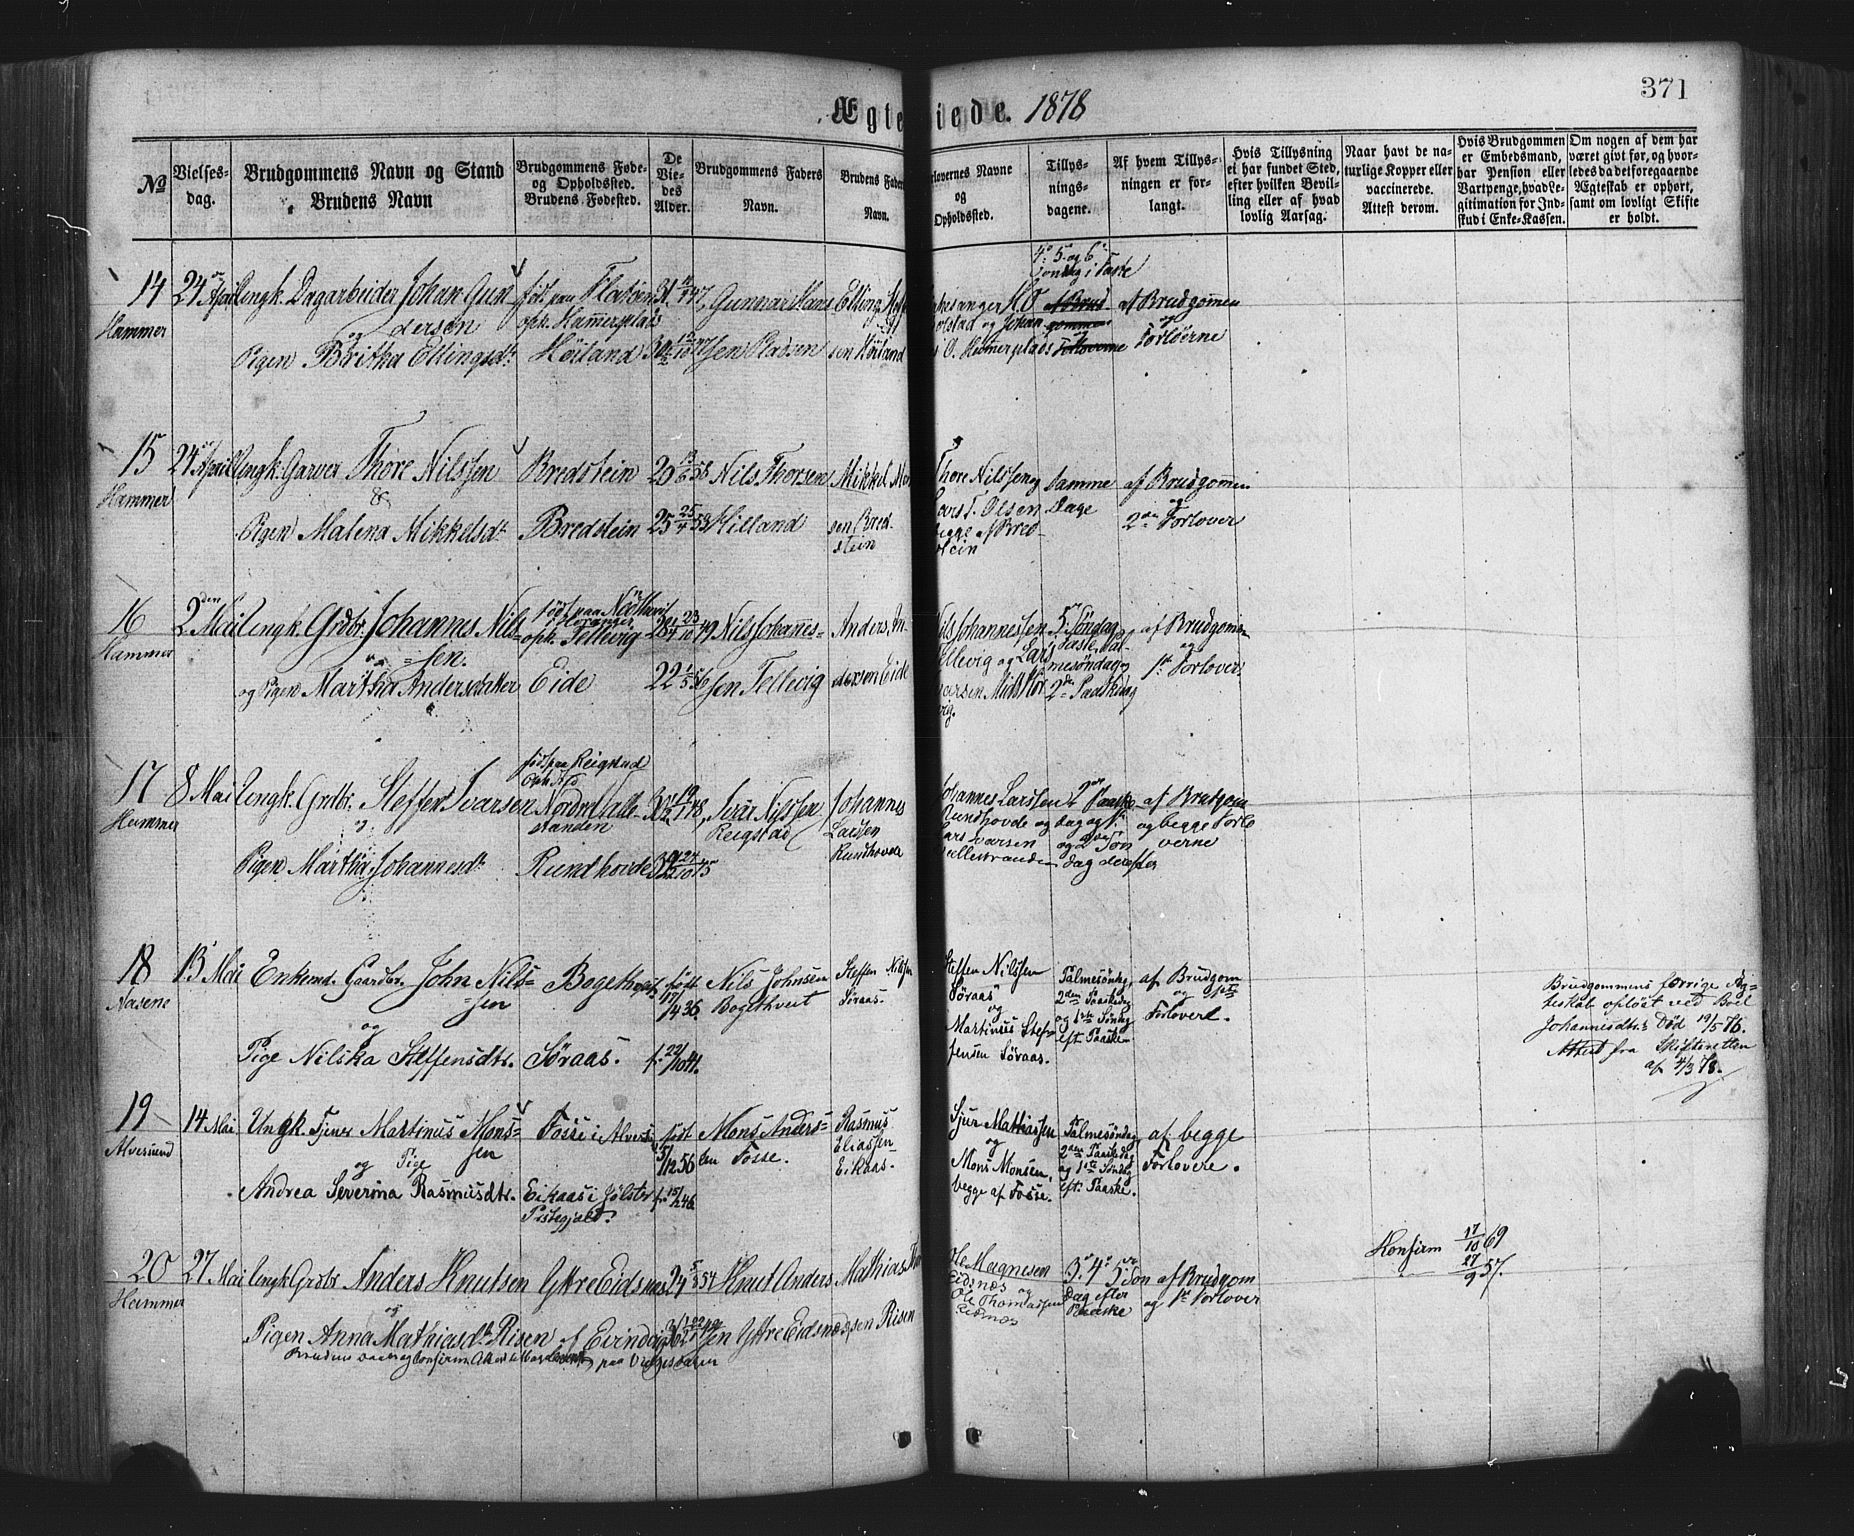 371
Ægteviede. 1878
№
Vielses-
dag.
Brudgommens Navn og Stand
Brudens Navn
Brudgommens Føde-
og Opholdssted.
Brudens Fødested.
De
Vie-
des
Alder.
Brudgommens Faders
Navn.
Brudens Faders
Navn.
Forlovernes Navne
og
Opholdssted.
Tillys-
nings-
dagene.
Af hvem Tillys-
ningen er for-
langt.
Hvis Tillysning
ei har fundet Sted,
efter hvilken Bevil-
ling eller af hvad
lovlig Aarsag.
Naar havt de na-
turlige Kopper eller
vaccinerede.
Attest derom.
Hvis Brudgommen
er Embedsmand,
har Pension eller
Vartpenge, hvad Le-
gitimation for Ind-
skud i Enke-Kassen.
Om nogen af dem har
været givt før, og hvor-
ledes da det foregaaende
Ægteskab er ophørt,
samt om lovligt Skifte
er holdt.
14
Hammer
24 April
Ungk. Dagarbeider Johan Gun
dersen
og
Pigen Britha Ellingsdt.
opk. Hammerplads
Høiland
Gunnar Hans
sen Pladsen
Elling
sen Høiland
Kirkesanger
og Johan
Hammerplads
4de 5 og 6
Søndag i Faste
af Brudgommen
og
Forloverne
15
Hammer
24 April
Ungk. Garver Thore Nilssen
&
Pigen Malena Mikkelsdt.
Bredstein
Bredstein
25 58
25 25/4 53
Nils Thorsen
Hilland
Mikkel Mon
sen Bred
stein
Thore Nilssen og
Lars T. Olsen
begge af Bred-
stein
Samme
Dage
af Brudgommen
og
2den Forlover
16
Hammer
2den Mai
Ungk. Grdbr. Johannes Nils
sen.
og Pigen Martha Andersdatter
opk. Tellevig
Eide
28 23/10 49
22 1/5 56
Nils Johannes-
sen Tellevig
Anders An
dersen Eide
Nils Johannessen
Tellevig og Lars
Larsen
5te Søndag
Faste, Pal-
mesøndag og
2den Paaskedag
af Brudgommen
og
1ste Forlover
17
Hammer
8 Mai
Ungk. Grdbr. Steffen Ivarsen
og
Pigen Martha Johannesdt.
født paa Reigstad
Nordre Valle-
stranden
Rundhovde
Ivar Nilssen
Reigstad
Johannes
Larssen
Rundhovde
Johannes Larssen
Rundhovde og
Lars Ivarsen
Vallestranden
2den Paaske-
dag og 1ste
og 2den Søn
dag derefter
af Brudgom
og begge Forlo
verne
18
Nasene
13 Mai
Enkemd. Gaardbr. John Nils=
=sen
og
Pige Nilska Steffensdtr.
Bogethveit
Søraas.
født
17/4 36
f. 22/10 41.
Nils Johnsen
Bogethveit
Steffen Nilssen
Søraas.
Steffen Nilssen
Søraas
og
Martinus Stef-
fensen Søraas.
Palmesøndag,
2den Paaskedag
og 1ste Søndag
eft. Paaske.
af Brudgom
og 1ste
Forlover.
Brudgommens forrige Æg-
teskab opløst ved Boel
Johannesdtrs Død 19/5 76.
Attest fra Skifteretten
af 4/3 78.
19
Alversund
14 Mai
Ungk. Tjener Martinus Mons=
sen
og Pige
Andrea Severina Rasmusdtr.
Fosse i Alvers
Eikaas i Jølster
Præstegjæld.
født
5/12 56
f. 15/2 46.
Mons Anders=
sen Fosse.
Rasmus
Eliassen
Eikaas.
Sjur Mathiassen
og
Mons Monsen,
begge af Fosse.
Palmesøndag,
2den Paaskedag
og 1ste Søndag
eft. Paaske.
af begge
Forlovere.
20
Hammer
27 Mai
Ungk. Grdbr. Anders Knutsen
og
Pigen Anna Mathiasdt. Risen af Eivindvig
Ytre Eidsnæs
24 5/3 54
Knut Anders
sen Ytre Eidsnæs
Mathias
sen Risen
Ole Magnesen
Eidsnæs og
Ole Thomassen
Eidsnæs
3. 4. 5 Søn
dag efter
Paaske
af Brudgom
og 1ste Forlover
Konfirm 17/10 69
27/9 57.